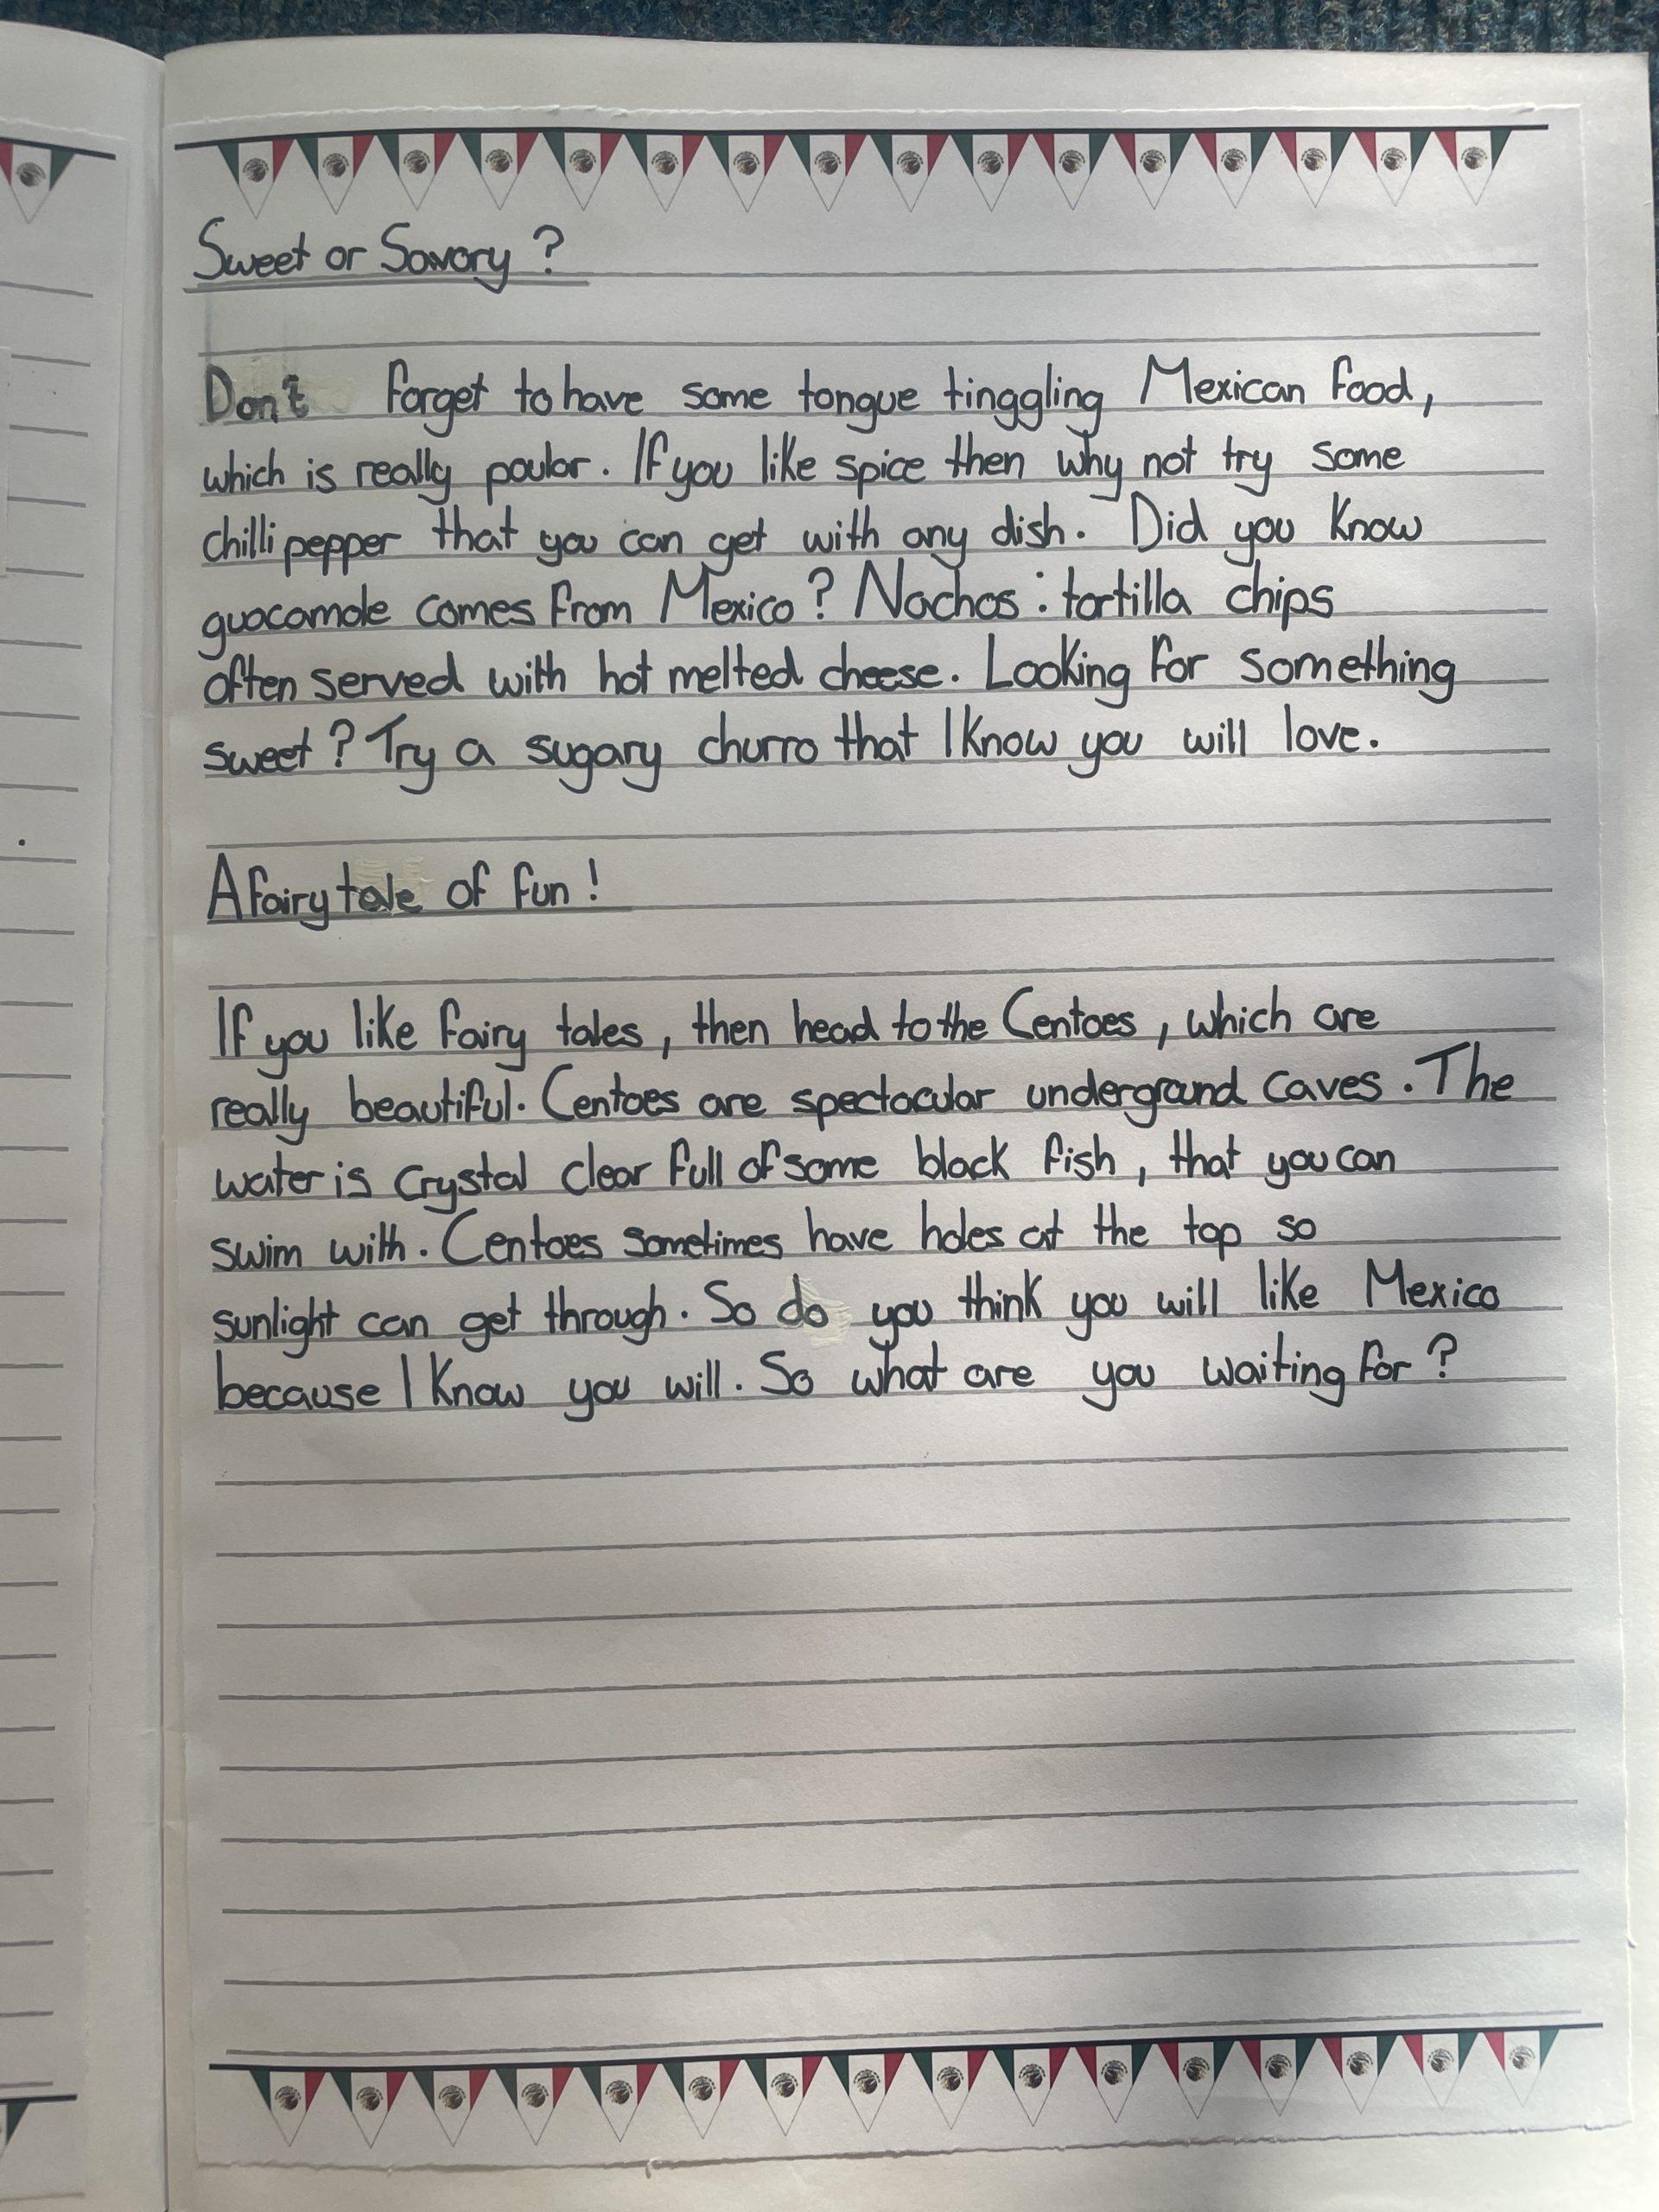 Sweet or Savory ?
Don't forget to have some tongue tinggling Mexican food,
which is really poular. If you like spice then why not try some
chilli pepper that you can get with any dish. Did you know
guacamole comes from Mexico? Nachos : tortilla chips
often served with hot melted cheese. Looking for something
sweet? Try a sugary churro that I know you will love.
A fairy tale of fun!
If you like fairy tales, then head to the Centoes, which are
really beautiful. Centoes are spectacular underground caves. The
water is crystal clear full of some black fish, that you can
swim with. Centoes sometimes have holes at the top so
sunlight can get through. So do you think you will like Mexico
because I know you will. So what are you waiting for?